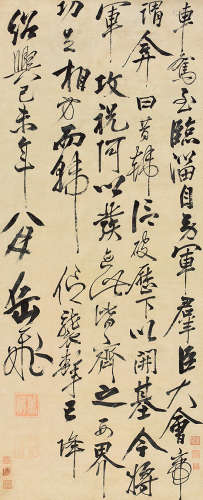 車駕至臨淄自勞軍羣臣大會帝
謂弇曰昔韓信破歷下以開基今將
軍攻祝阿以發迹此皆齊之西界
功足相方而韓信襲擊已降
紹興己未年八月岳飛